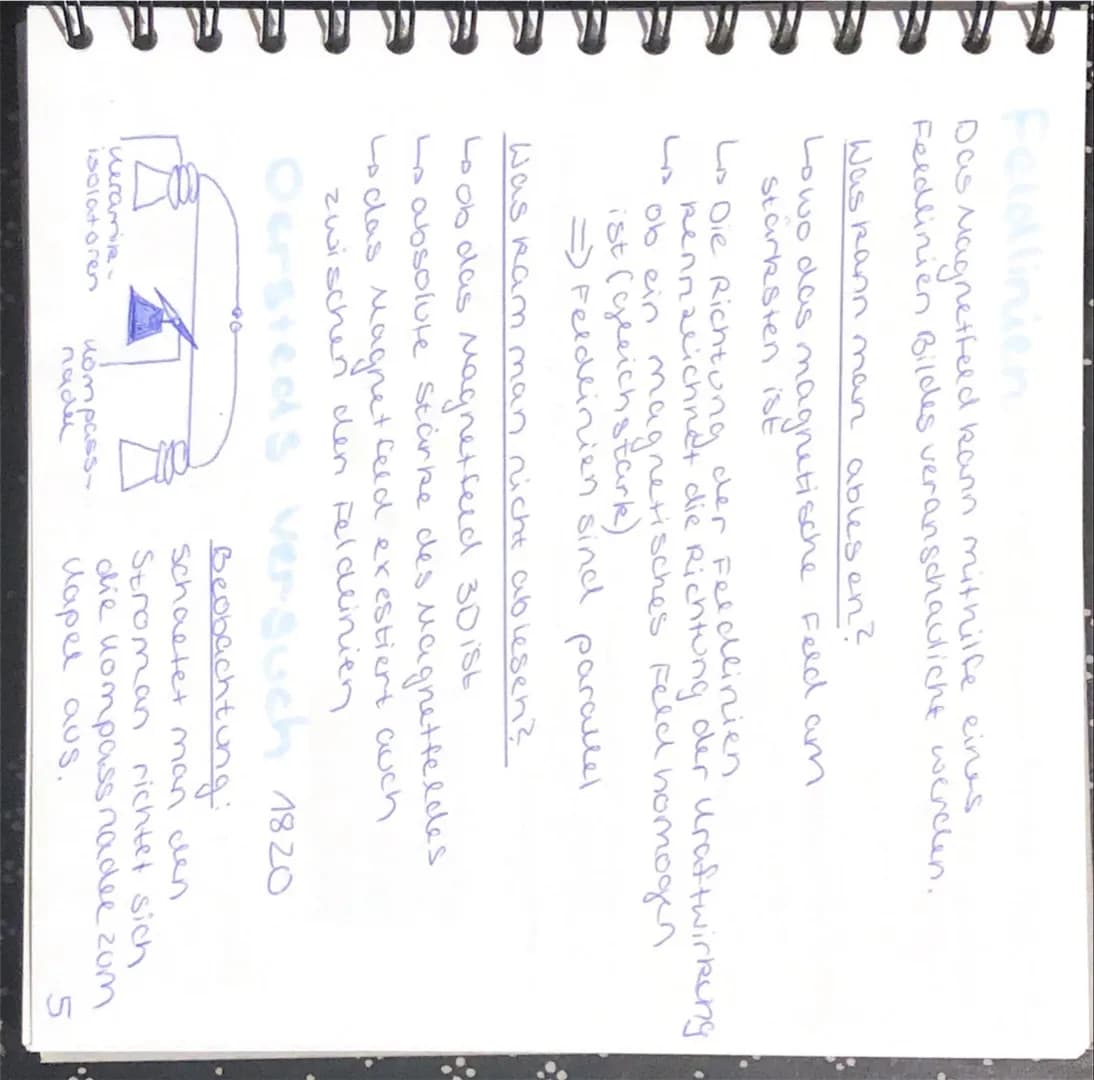 Feldlinien
Das Magnetfeld kann mithilfe eines
Feldlinien Bildes veranschaulicht werden.
Was kann man ablesen?
↳ wo das magnetische Feld am
stärksten ist
↳ Die Richtung der Feldlinien
kennzeichnet die Richtung der Kraftwirkung
↳ ob ein magnetisches Feld homogen
ist (gleich stark)
⇒ Feldlinien sind parallel
Was kann man nicht ablesen?
↳ ob das Magnetfeld 3D ist
↳ absolute Stärke des Magnetfeldes
↳ das Magnetfeld existiert auch
zwischen den Feldlinien
Oersteds Versuch 1820
Keramik-
isolatoren
Kompass-
nadel
Beobachtung:
Schaltet man den
Strom an richtet sich
die Kompassnadel zum
Kapel aus.
5